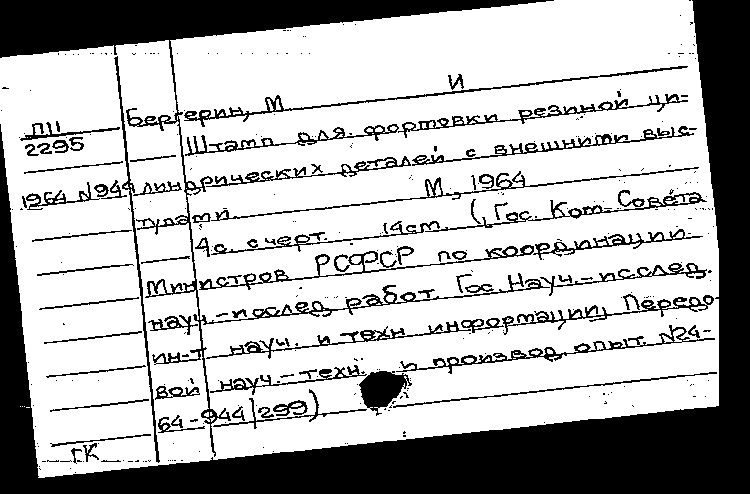 И
П11 Бергерин, М
2295 Штамп для фортовки резиной ци-
1964 N944 линдрических деталей с внешними выс-
тупами. М., 1964
4с. с черт. 14см. (Гос. Ком. Совета
Министров РСФСР по координации
науч.-послед. работ. Гос. Науч.-исслед.
ин-т науч. и техн информации, Передо-
вой науч.-техн. и производ. опыт. N24-
64-944/299).
ГК